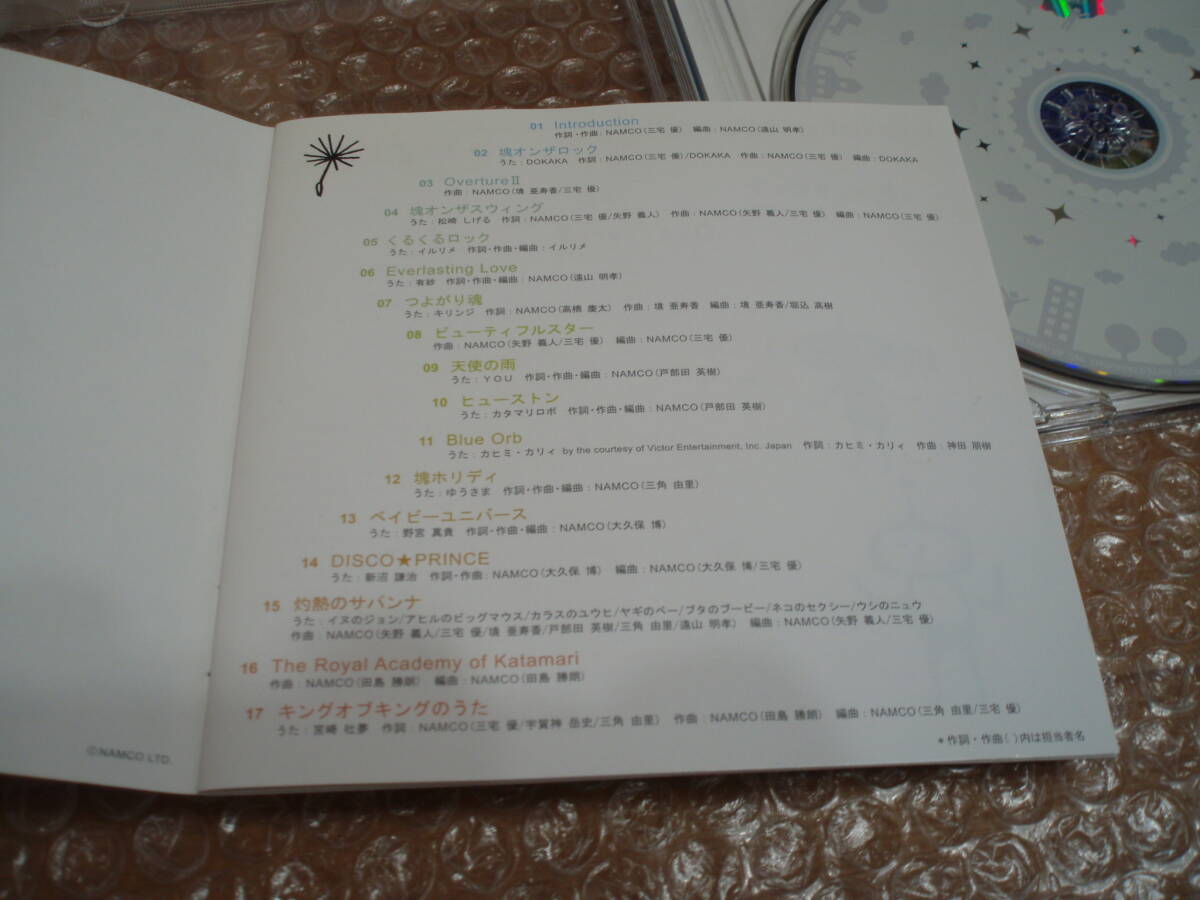 01 Introduction
作詞・作曲：NAMCO（三宅 優） 編曲：NAMCO（遠山 明孝）
02 塊オンザロック
うた：DOKAKA 作詞：NAMCO（三宅 優）/DOKAKA 作曲：NAMCO（三宅 優） 編曲：DOKAKA
03 OvertureⅡ
作曲：NAMCO（境 亜寿香/三宅 優）
04 塊オンザスウィング
うた：松崎 しげる 作詞：NAMCO（三宅 優/矢野 義人） 作曲：NAMCO（矢野 義人/三宅 優） 編曲：NAMCO（三宅 優）
05 くるくるロック
うた：イルリメ 作詞・作曲・編曲：イルリメ
06 Everlasting Love
うた：有紗 作詞・作曲・編曲：NAMCO（遠山 明孝）
07 つよがり魂
うた：キリンジ 作詞：NAMCO（高橋 慶太） 作曲：境 亜寿香 編曲：境 亜寿香/堀込 高樹
08 ビューティフルスター
作曲：NAMCO（矢野 義人/三宅 優） 編曲：NAMCO（三宅 優）
09 天使の雨
うた：YOU 作詞・作曲・編曲：NAMCO（戸部田 英樹）
10 ヒューストン
うた：カタマリロボ 作詞・作曲・編曲：NAMCO（戸部田 英樹）
11 Blue Orb
うた：カヒミ・カリィ by the courtesy of Victor Entertainment, Inc. Japan 作詞：カヒミ・カリィ 作曲：神田 朋樹
12 塊ホリディ
うた：ゆうさま 作詞・作曲・編曲：NAMCO（三角 由里）
13 ベイビーユニバース
うた：野宮 真貴 作詞・作曲・編曲：NAMCO（大久保 博）
14 DISCO★PRINCE
うた：新沼 謙治 作詞・作曲：NAMCO（大久保 博） 編曲：NAMCO（大久保 博/三宅 優）
15 灼熱のサバンナ
うた：イヌのジョン/アヒルのビッグマウス/カラスのユウヒ/ヤギのペー/ブタのブービー/ネコのセクシー/ウシのニュウ
作曲：NAMCO（矢野 義人/三宅 優/境 亜寿香/戸部田 英樹/三角 由里/遠山 明孝） 編曲：NAMCO（矢野 義人/三宅 優）
16 The Royal Academy of Katamari
作曲：NAMCO（田島 勝朗） 編曲：NAMCO（田島 勝朗）
17 キングオブキングのうた
うた：宮崎 壮夢 作詞：NAMCO（三宅 優/宇賀神 岳史/三角 由里） 作曲：NAMCO（田島 勝朗） 編曲：NAMCO（三角 由里/三宅 優）
＊作詞・作曲（ ）内は担当者名
©NAMCO LTD.